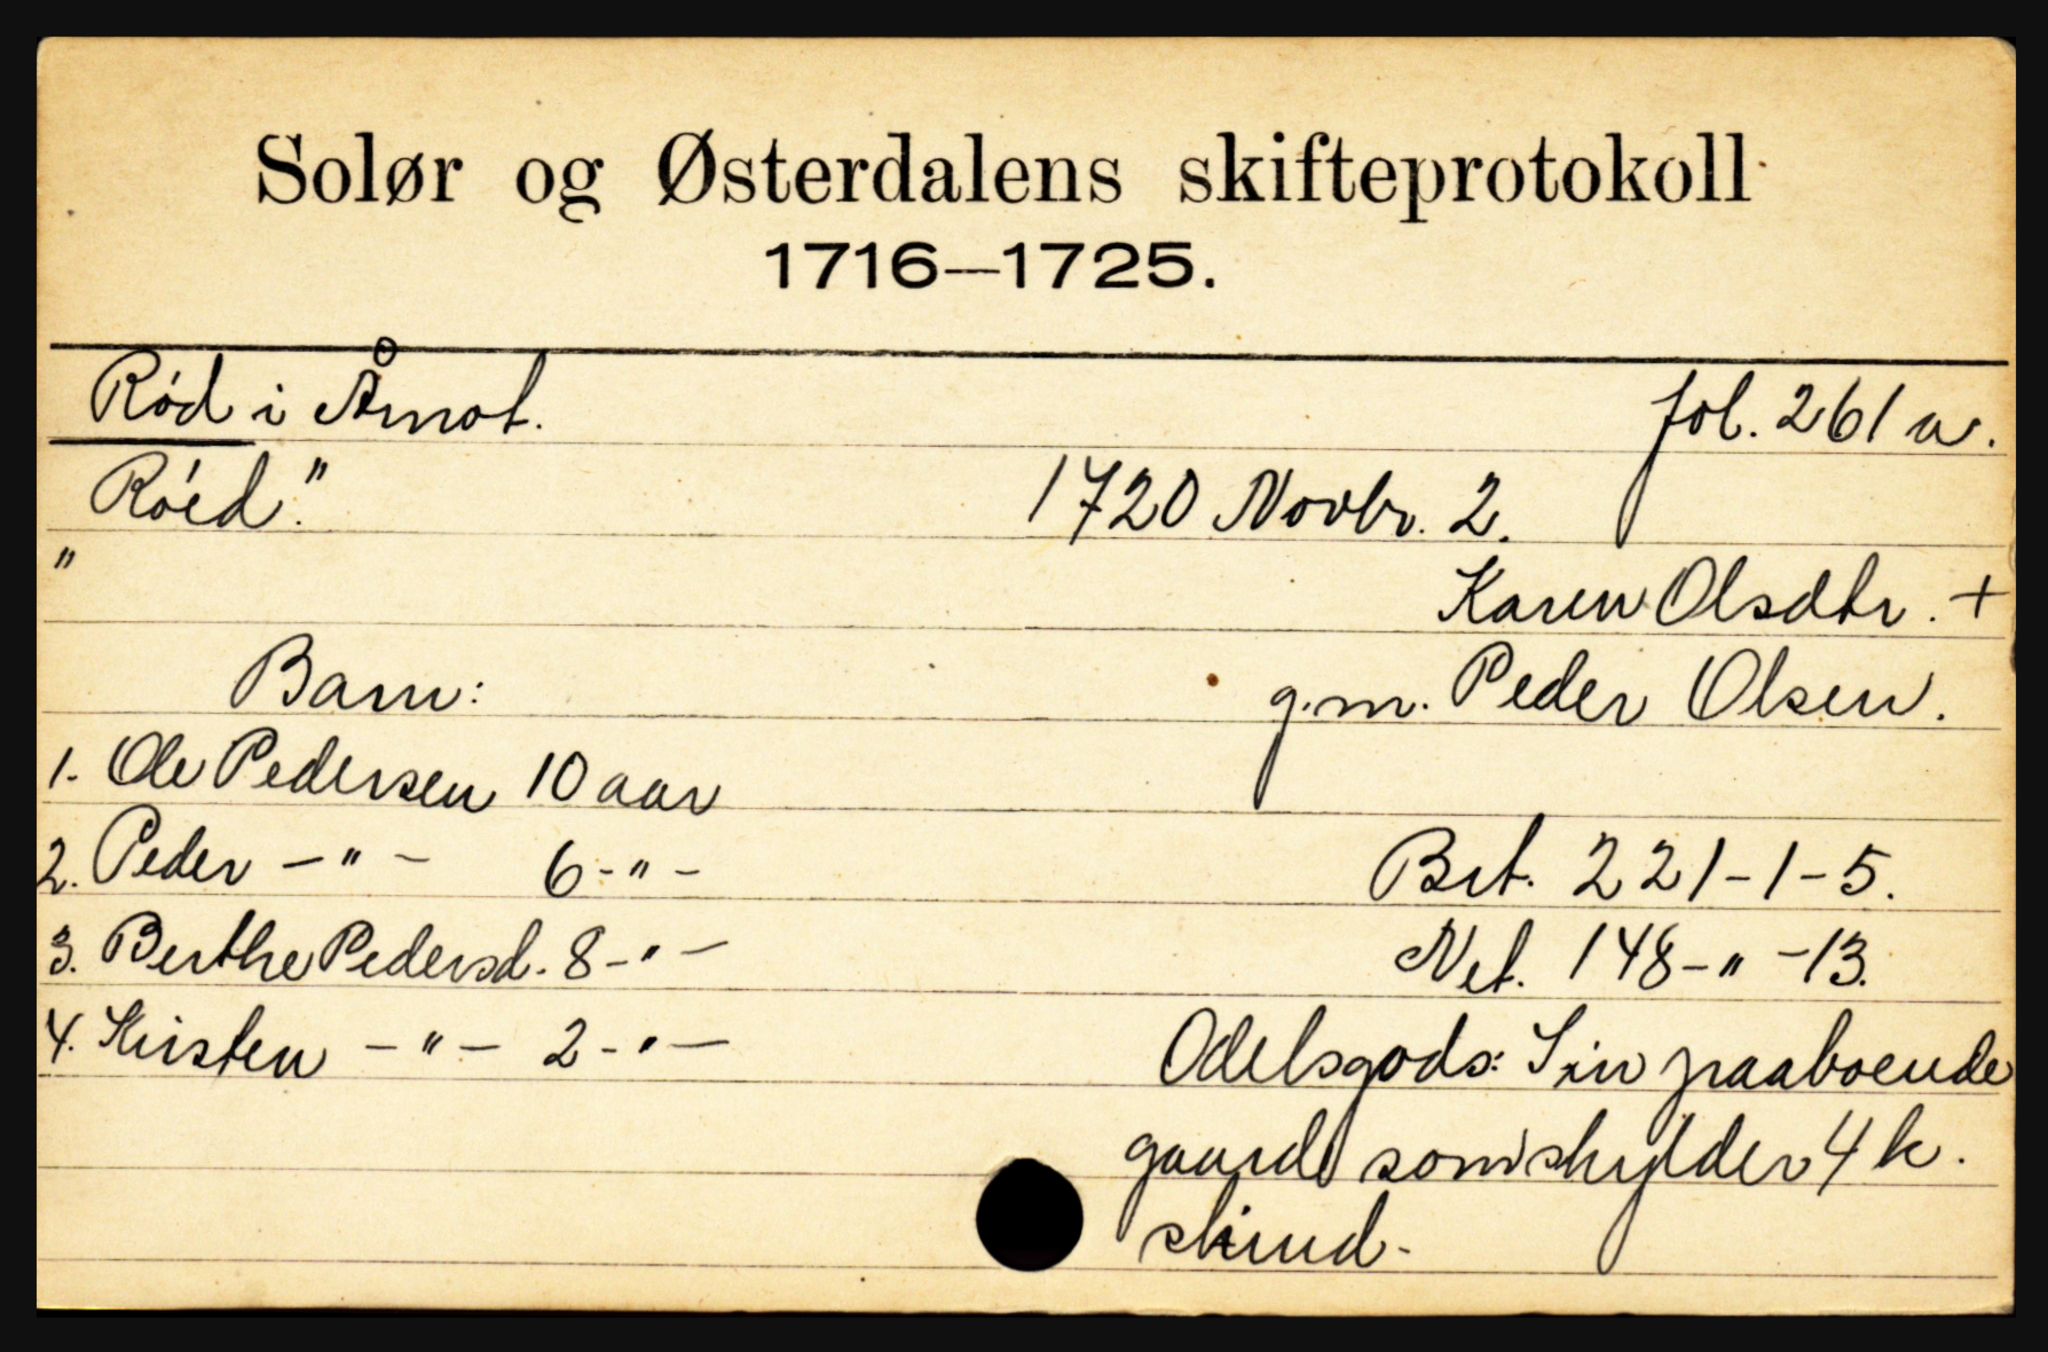 Solør og Østerdalens skifteprotokoll
1716—1725.
Rød i Åmot. fol. 261 a.
"Røed." 1720 Novbr. 2.
Karen Olsdtr. +
Barn: g.m. Peder Olsen.
1. Ole Pedersen 10 aar
2. Peder - " - 6 - " - Brt. 221-1-5.
3. Berthe Pedersd. 8 - " - Net. 148-"-13.
4. Kirsten - " - 2 - " - Odelsgods: Sin paaboende
gaard som skylder 4 k.
skind.